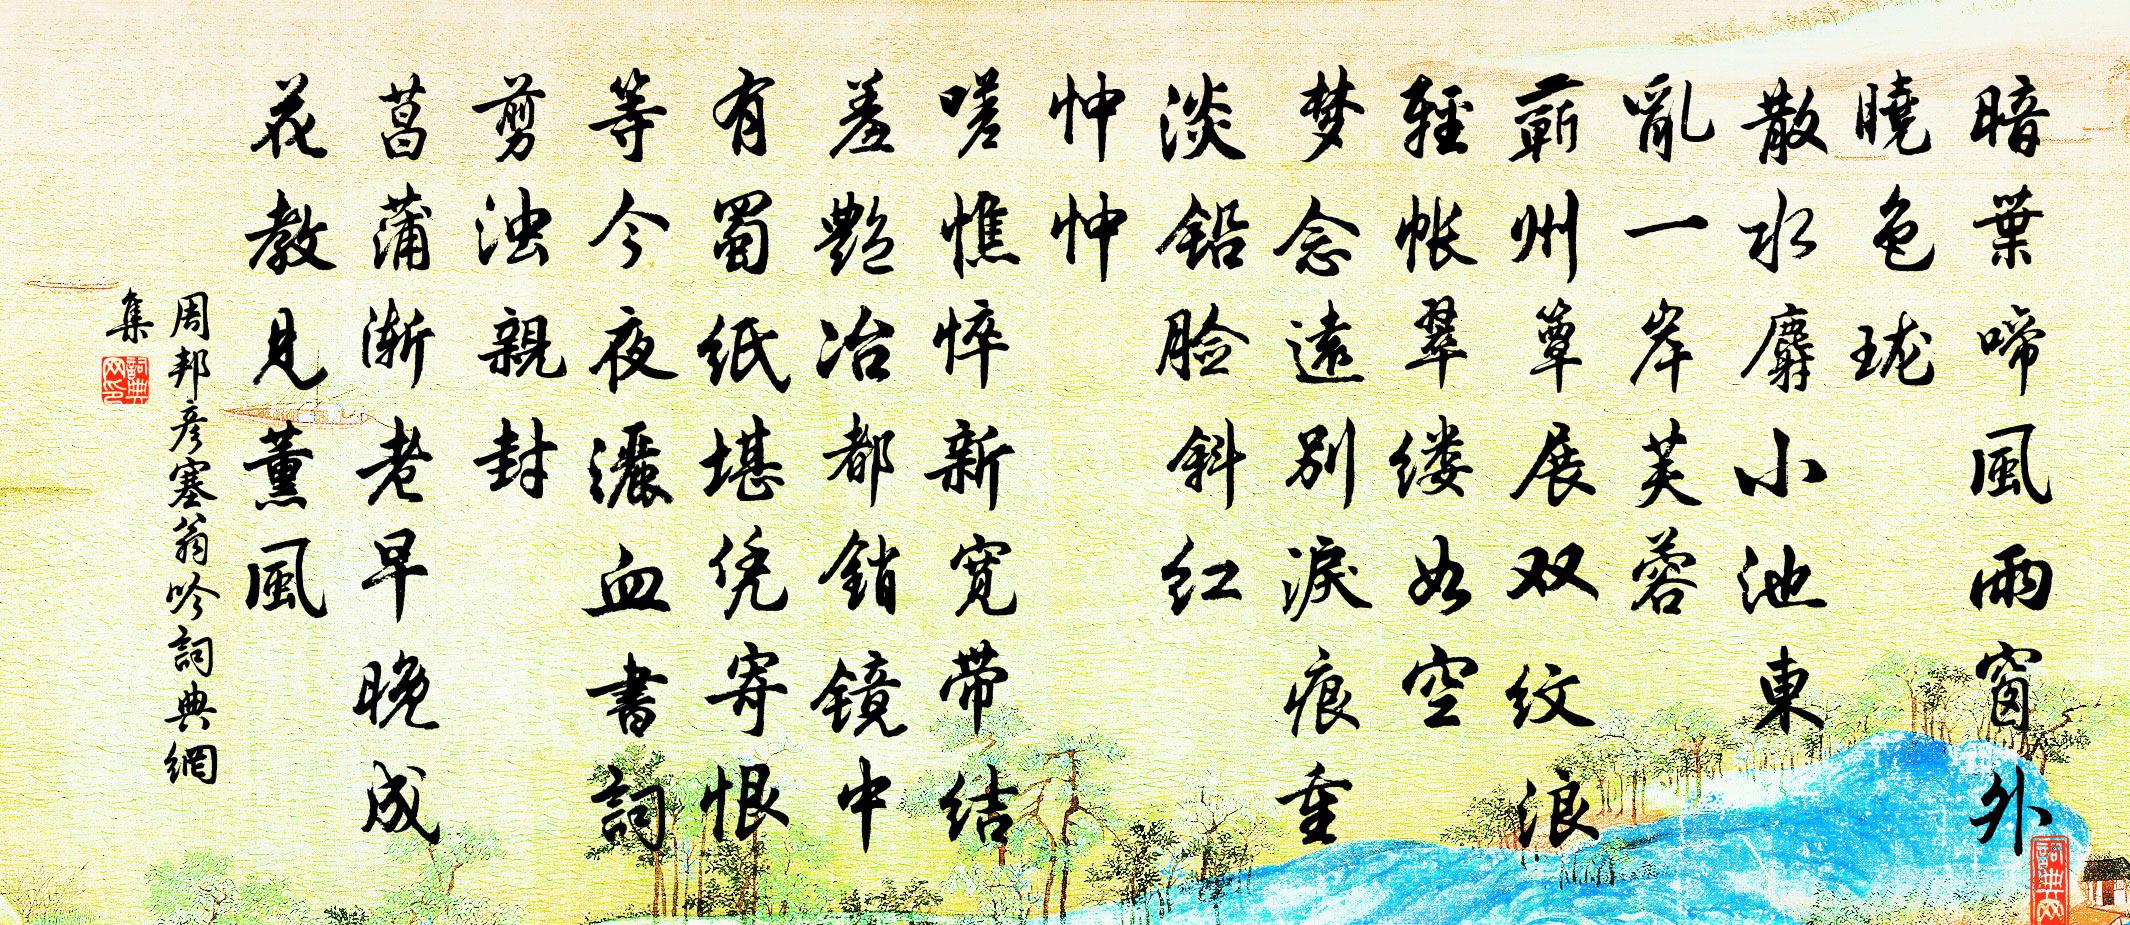 暗葉啼風雨窗外
曉色瓏
散水麝小池東
亂一岸芙蓉
蕲州簟展双紋浪
輕帐翠缕如空
梦念遠别淚痕重
淡鉛脸斜红
忡忡
嗟憔悴新宽带结
羞艷冶都銷镜中
有蜀纸堪凭寄恨
等今夜灑血書詞
剪浊親封
菖蒲渐老早晚成
花教見薰風
周邦彦塞翁吟詞典網
集
詞典网印
詞典网